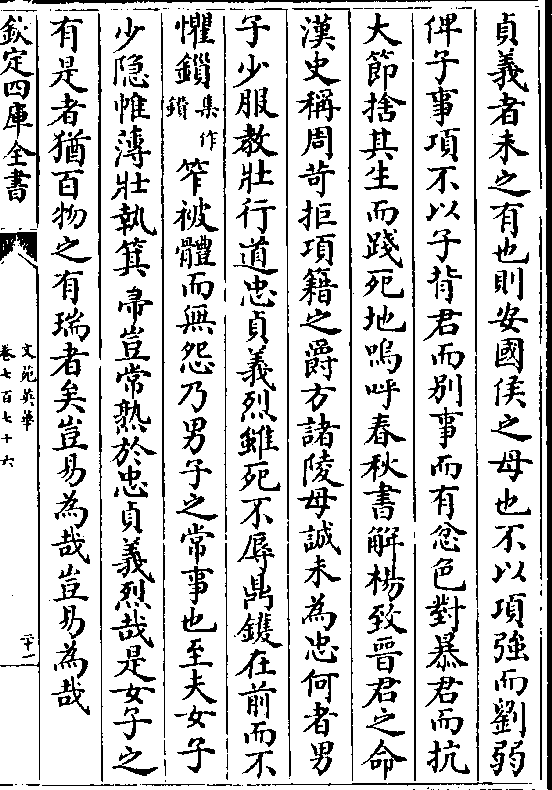 貞義者未之有也則安國侯之母也不以項強而劉弱
俾子事項不以子背君而別事而有忿色對暴君而抗
大節捨其生而踐死地嗚呼春秋書解楊致晉君之命
漢史稱周苛拒項籍之爵方諸陵母誠未為忠何者男
子少服教壯行道忠貞義烈雖死不辱鼎鑊在前而不
懼鎖集作鑕笮被體而無怨乃男子之常事也至夫女子
少隐帷薄壯執箕帚豈常熟於忠貞義烈哉是女子之
有是者猶百物之有瑞者矣豈易為哉豈易為哉
欽定四庫全書
文苑英華
卷七百七十六
二十二